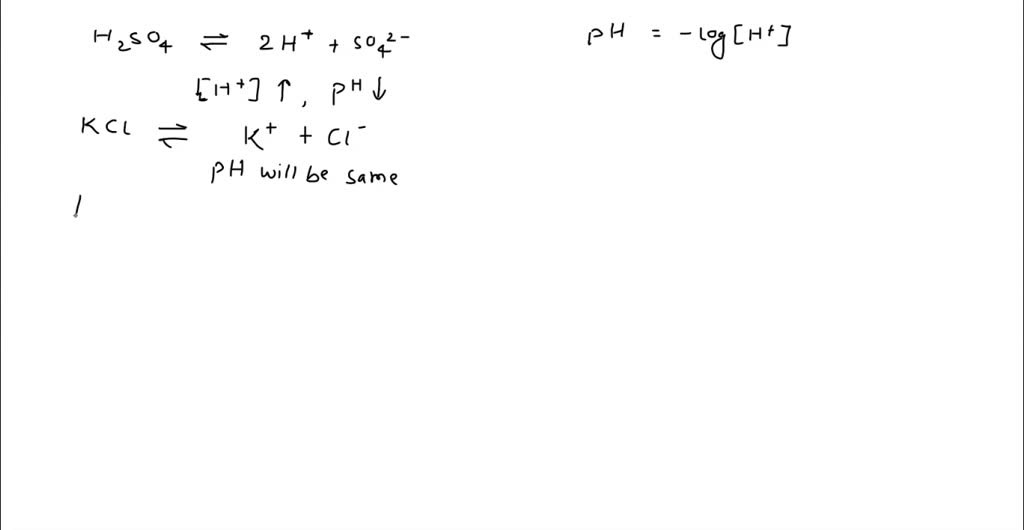 H₂SO₄ ⇌ 2H⁺ + SO₄²⁻
pH = -log[H⁺]
[H⁺] ↑, pH ↓
KCl ⇌ K⁺ + Cl⁻
pH will be same